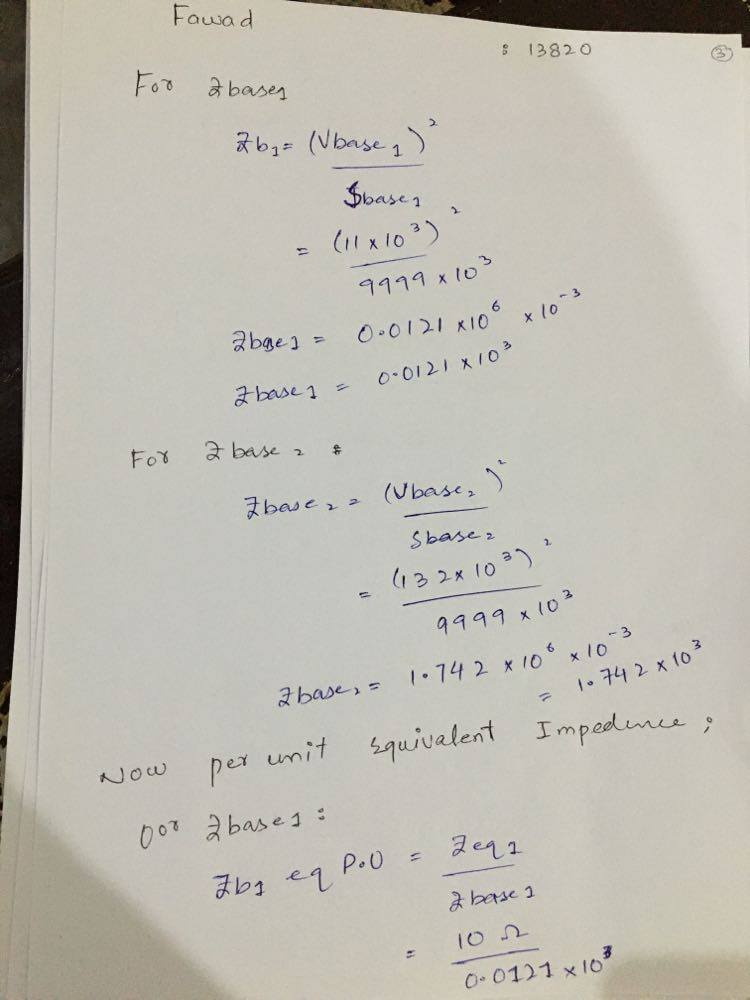 Fawad
: 13820
3
For Zbase1
Zb1 = (Vbase1)²
Sbase1
= (11 × 10³)²
9999 × 10³
Zbase1 = 0.0121 × 10⁶ × 10⁻³
Zbase1 = 0.0121 × 10³
For Zbase2 :
Zbase2 = (Vbase2)²
Sbase2
= (132 × 10³)²
9999 × 10³
Zbase2 = 1.742 × 10⁶ × 10⁻³
= 1.742 × 10³
Now per unit Equivalent Impedence ;
Oor Zbase1 :
Zb1 eq P.U = Zeq1
Zbase1
= 10 Ω
0.0121 × 10³